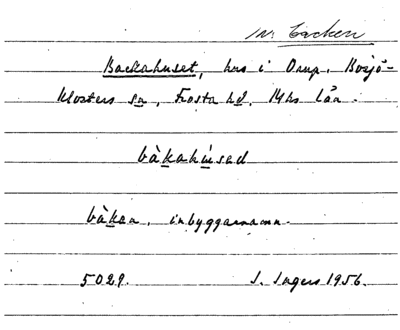 Backen
Backahuset, hus i Orup, Bosjö-
klosters sn, Frosta hd. Mhs län.
bàkahùsad
bàkan, inbyggarnamn.
5029. S. Ingers 1956.